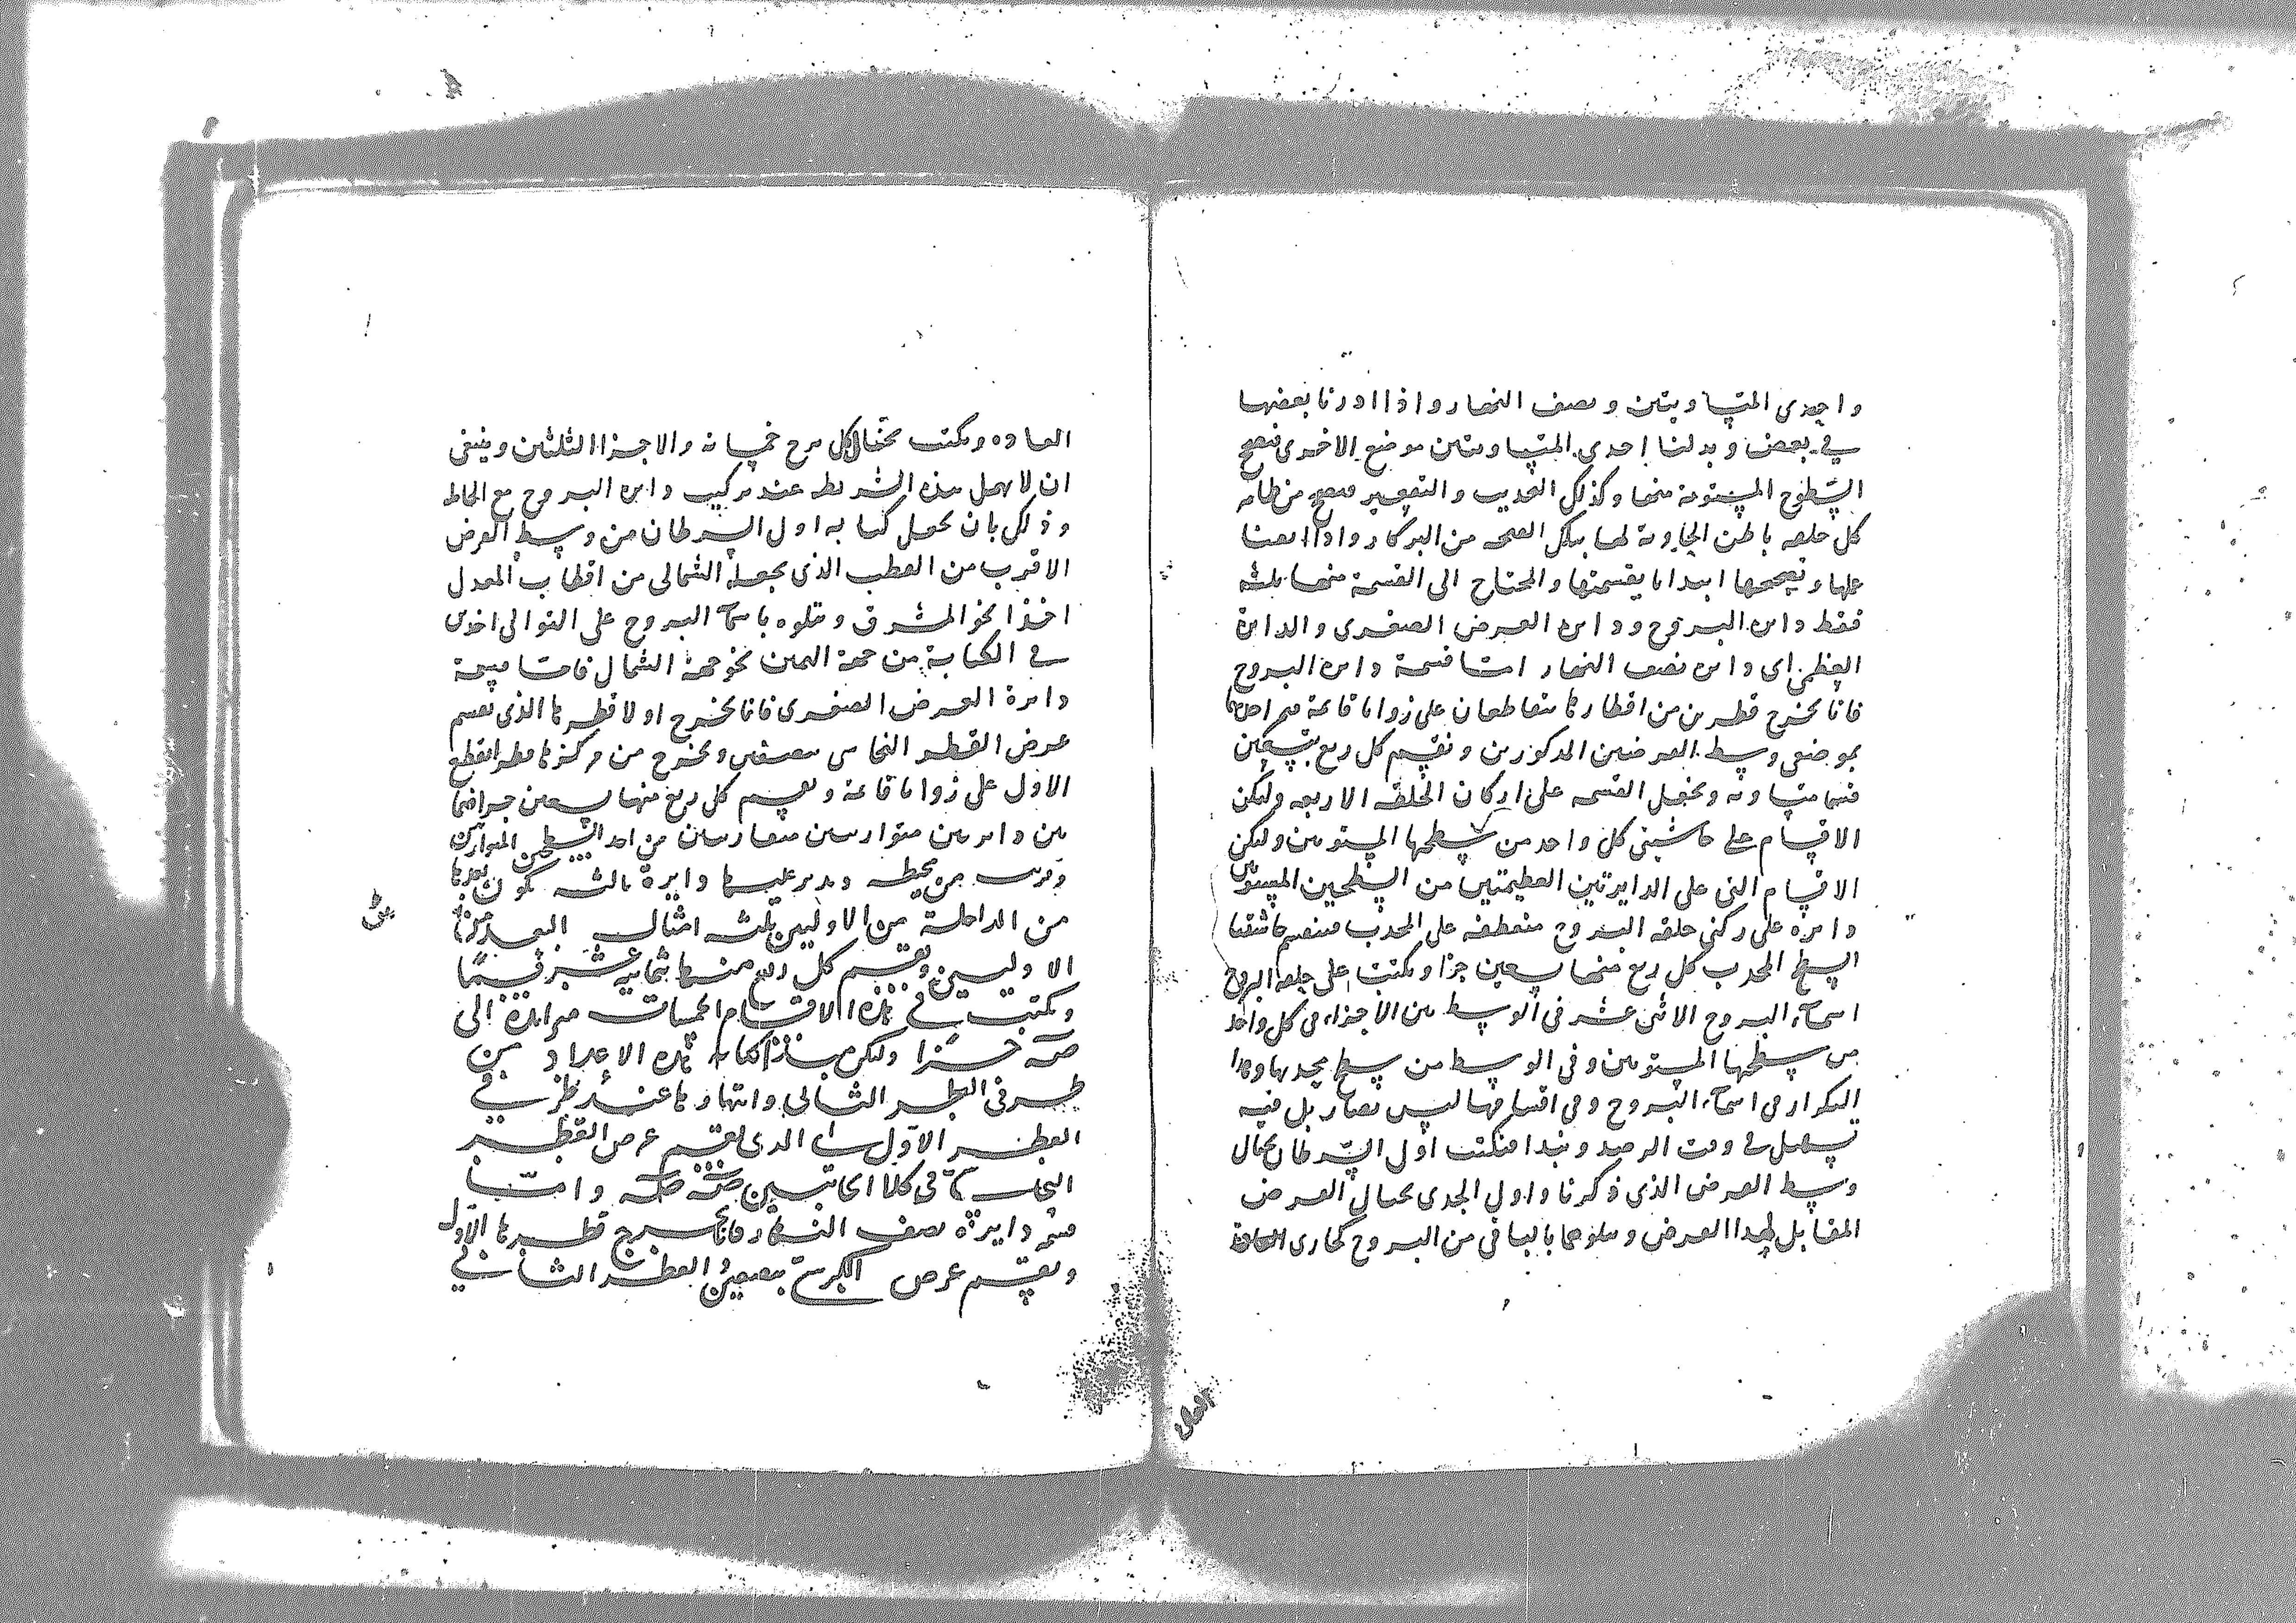 واحدى المتساويتين ونصف النهار واذا ادرنا بعضها
في بعض وبدلنا احدى المتساويتين موضع الاخرى فتصح
السطوح المستوية منها وكذلك التحديب والتقعير فيصح من طابه
كل حلقه باطن المحاوية لها بتلك الصحه من البركار واذا امعنا
عملها وتصحيحها ابتدانا بقسمتها والمحتاج الى القسمة منها ثلثه
فقط دايره البروج ودايره العرض الصغرى والدايرة
العظمى اى دايره نصف النهار اما قسمة دايره البروج
فانا نخرج قطرين من اقطارها متقاطعان على زوايا قائمة يمر احدهما
بموضعى وسط العرضين المذكورين ونقسم كل ربع بتسعين
قسما متساويه ونجعل القسمه على اركان الحلقه الاربعه ولتكن
الاقسام على حاشيتى كل واحد من سطحها المستويين ولتكن
الاقسام التى على الدايرتين العظيمتين من السطحين المستويين
دايره على ركنى حلقه البروج منعطفه على المحدب فينقسم حاشيتا
السطح المحدب كل ربع منها بتسعين جزا ونكتب على حلقه البروج
اسماء البروج الاثنى عشر فى الوسط بين الاجزاء فى كل واحد
من سطحها المستويين وفى الوسط من سطح محدبها وهذا
التكرار فى اسماء البروج وفى اقسامها ليس بضار بل فيه
تسهل فى وقت الرصد ونبدا فنكتب اول السرطان بحيال
وسط العرض الذى ذكرنا واول الجدى بحيال العرض
المقابل لهذا العرض ونتلوهما بالباقى من البروج كمجارى العادة
العاده
العاده ونكتب بحيال كل برج خمساته والاجزا الثلثين وينبغى
ان لا يهمل هذه الشريطه عند تركيب دايره البروج مع الحامله
وذلك بان نجعل كتابه اول السرطان من وسط العرض
الاقرب من القطب الذى نجعله الشمالى من اقطاب المعدل
اخذا نحو المشرق ونتلوه باسماء البروج على التوالى اخذى
فى الكتابة من جهة اليمين نحو جهة الشمال فاما قسمة
دايرة العرض الصغرى فانا نخرج اولا قطرها الذى يقسم
عرض القطر النحاسى بنصفين ونخرج من مركزها قطرا يقطع
الاول على زوايا قائمة ونقسم كل ربع منها بتسعين جزا فيما
بين دايرتين متوازيتين متقاربتين من احد السطحين المتوازيين
وقريب من محيطه وندير عليها دايرة ثالثه تكون بعدها
من الداخلة من الاوليين ثلثه امثال البعد بين
الاوليين ونقسم كل ربع منها بثمانيه عشر قسما
ونكتب فى هذه الاقسام الخمسات متزايدة الى
جزا وليكن مبتدا كتابه هذه الاعداد من
طرفى القطر الثانى وانتهاوها عند طرفى
القطر الاول الذى يقسم عرض القطر
النحاسى فى كلا الجانبين واما
قسمة دايرة نصف النهار فانا نخرج قطرها الاول
ويقسم عرض الكرسى بنصفين والقطر الثانى